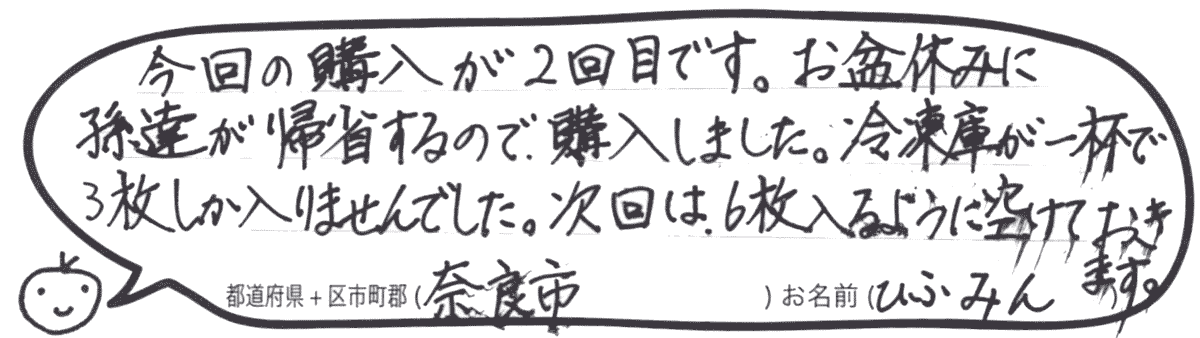 今回の購入が2回目です。お盆休みに
孫達が帰省するので、購入しました。冷凍庫が一杯で
3枚しか入りませんでした。次回は、6枚入るように空けておき
ます。
都道府県+区市町郡(奈良市)お名前(ひふみん